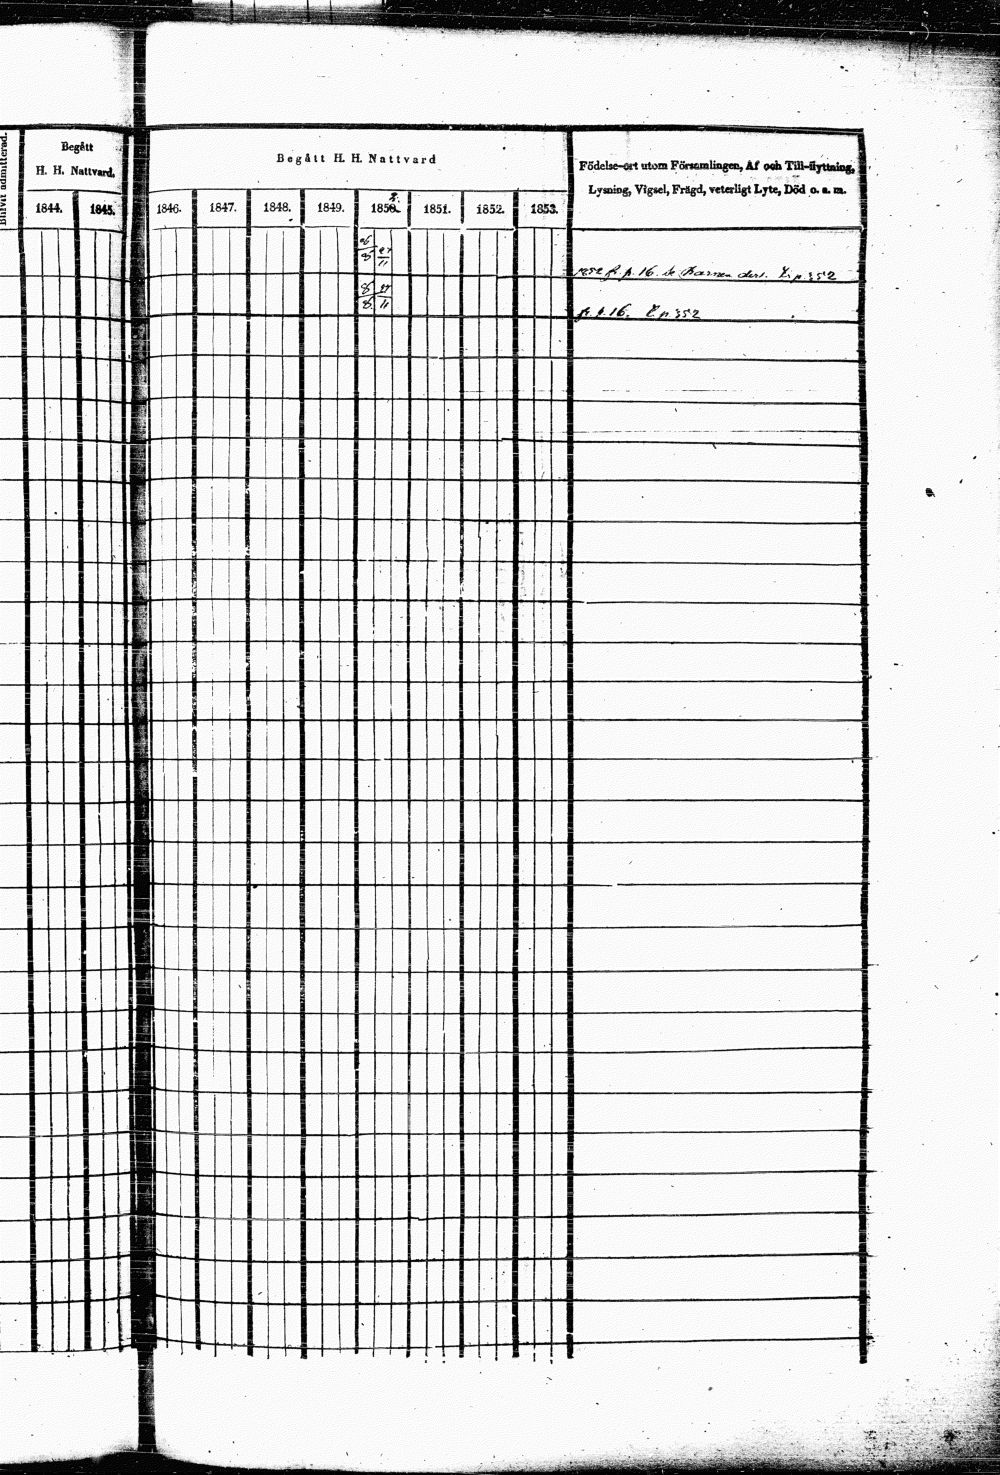 Blifvit admitterad.
Begått
H. H. Nattvard.
1844. 1845.
Begått H. H. Nattvard
1846. 1847. 1848. 1849. 1850. 1851. 1852. 1853.
2.
Födelse-ort utom Församlingen, Af och Till-flyttning,
Lysning, Vigsel, Frägd, veterligt Lyte, Död o. s. m.
27
11
1852 fr. p. 16. se Barnen ders. p 352
27
11
fr. p. 16. p 352